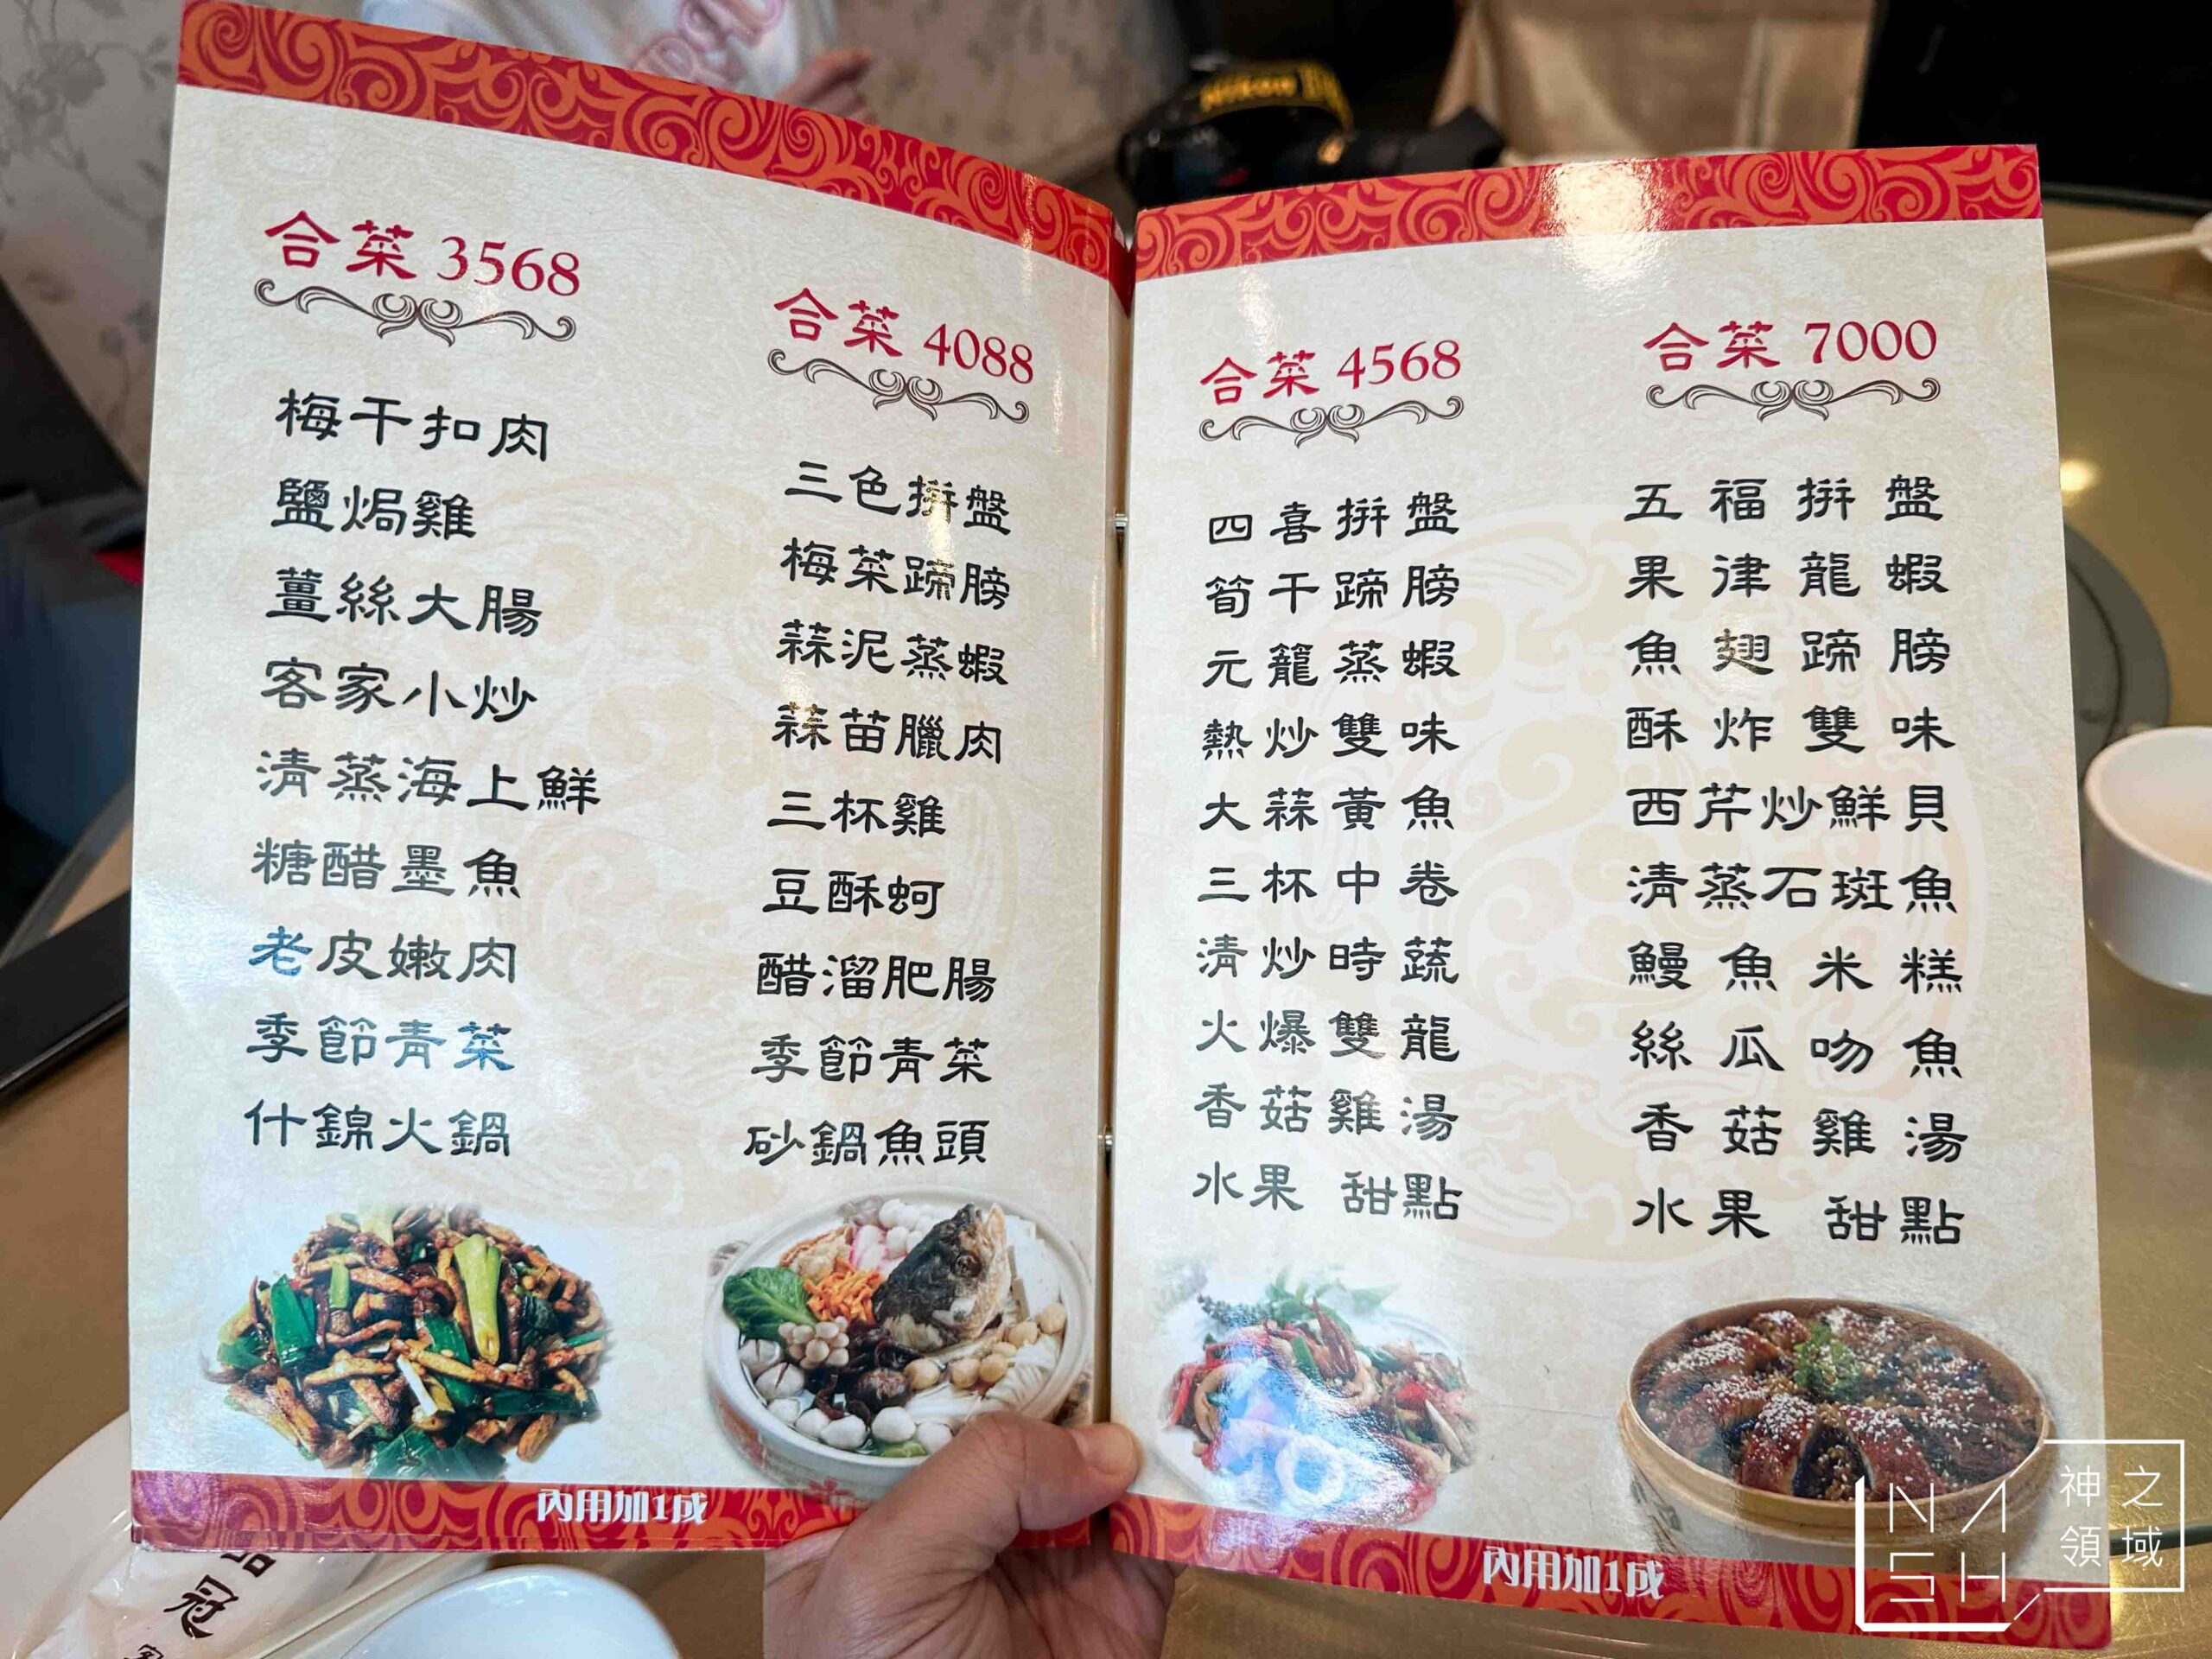 合菜 3568
梅干扣肉
鹽焗雞
薑絲大腸
客家小炒
清蒸海上鮮
糖醋墨魚
老皮嫩肉
季節青菜
什錦火鍋
合菜 4088
三色拼盤
梅菜蹄膀
蒜泥蒸蝦
蒜苗臘肉
三杯雞
豆酥蚵
醋溜肥腸
季節青菜
砂鍋魚頭
內用加1成
合菜 4568
四喜拼盤
筍干蹄膀
元籠蒸蝦
熱炒雙味
大蒜黃魚
三杯中卷
清炒時蔬
火爆雙龍
香菇雞湯
水果 甜點
合菜 7000
五福拼盤
果律龍蝦
魚翅蹄膀
酥炸雙味
西芹炒鮮貝
清蒸石斑魚
鰻魚米糕
絲瓜吻魚
香菇雞湯
水果 甜點
內用加1成
Nikon
冠
NASH
神之
領域